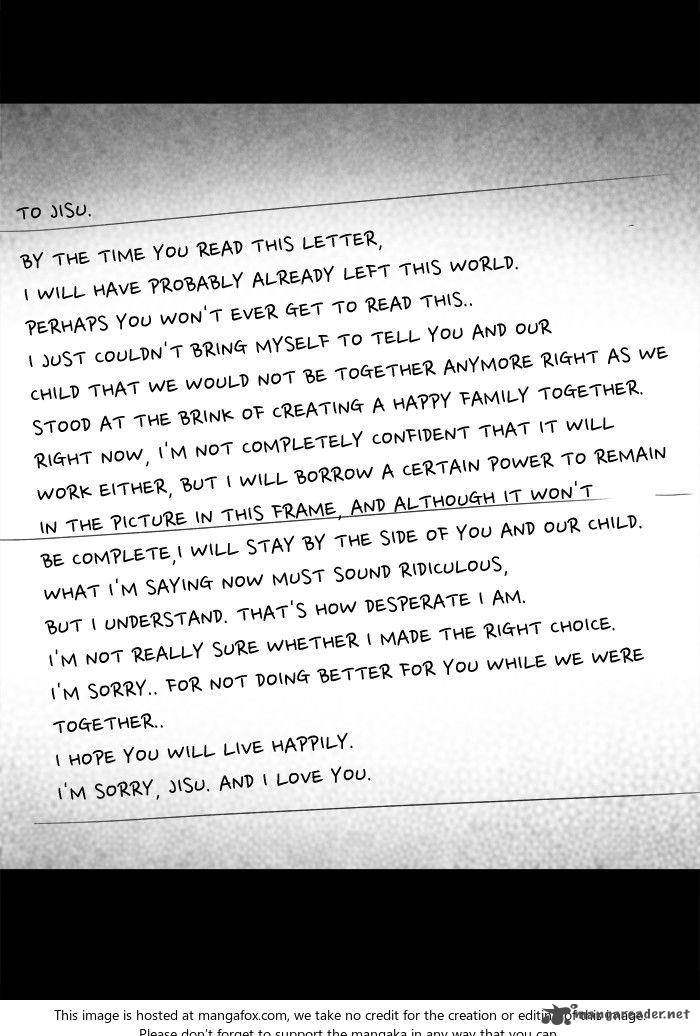 TO JISU.
BY THE TIME YOU READ THIS LETTER,
I WILL HAVE PROBABLY ALREADY LEFT THIS WORLD.
PERHAPS YOU WON'T EVER GET TO READ THIS..
I JUST COULDN'T BRING MYSELF TO TELL YOU AND OUR
CHILD THAT WE WOULD NOT BE TOGETHER ANYMORE RIGHT AS WE
STOOD AT THE BRINK OF CREATING A HAPPY FAMILY TOGETHER.
RIGHT NOW, I'M NOT COMPLETELY CONFIDENT THAT IT WILL
WORK EITHER, BUT I WILL BORROW A CERTAIN POWER TO REMAIN
IN THE PICTURE IN THIS FRAME, AND ALTHOUGH IT WON'T
BE COMPLETE,I WILL STAY BY THE SIDE OF YOU AND OUR CHILD.
WHAT I'M SAYING NOW MUST SOUND RIDICULOUS,
BUT I UNDERSTAND. THAT'S HOW DESPERATE I AM.
I'M NOT REALLY SURE WHETHER I MADE THE RIGHT CHOICE.
I'M SORRY.. FOR NOT DOING BETTER FOR YOU WHILE WE WERE
TOGETHER..
I HOPE YOU WILL LIVE HAPPILY.
I'M SORRY, JISU. AND I LOVE YOU.
This image is hosted at mangafox.com, we take no credit for the creation or editing of this image.
mangareader.net
Please don't forget to support the mangaka in any way that you can